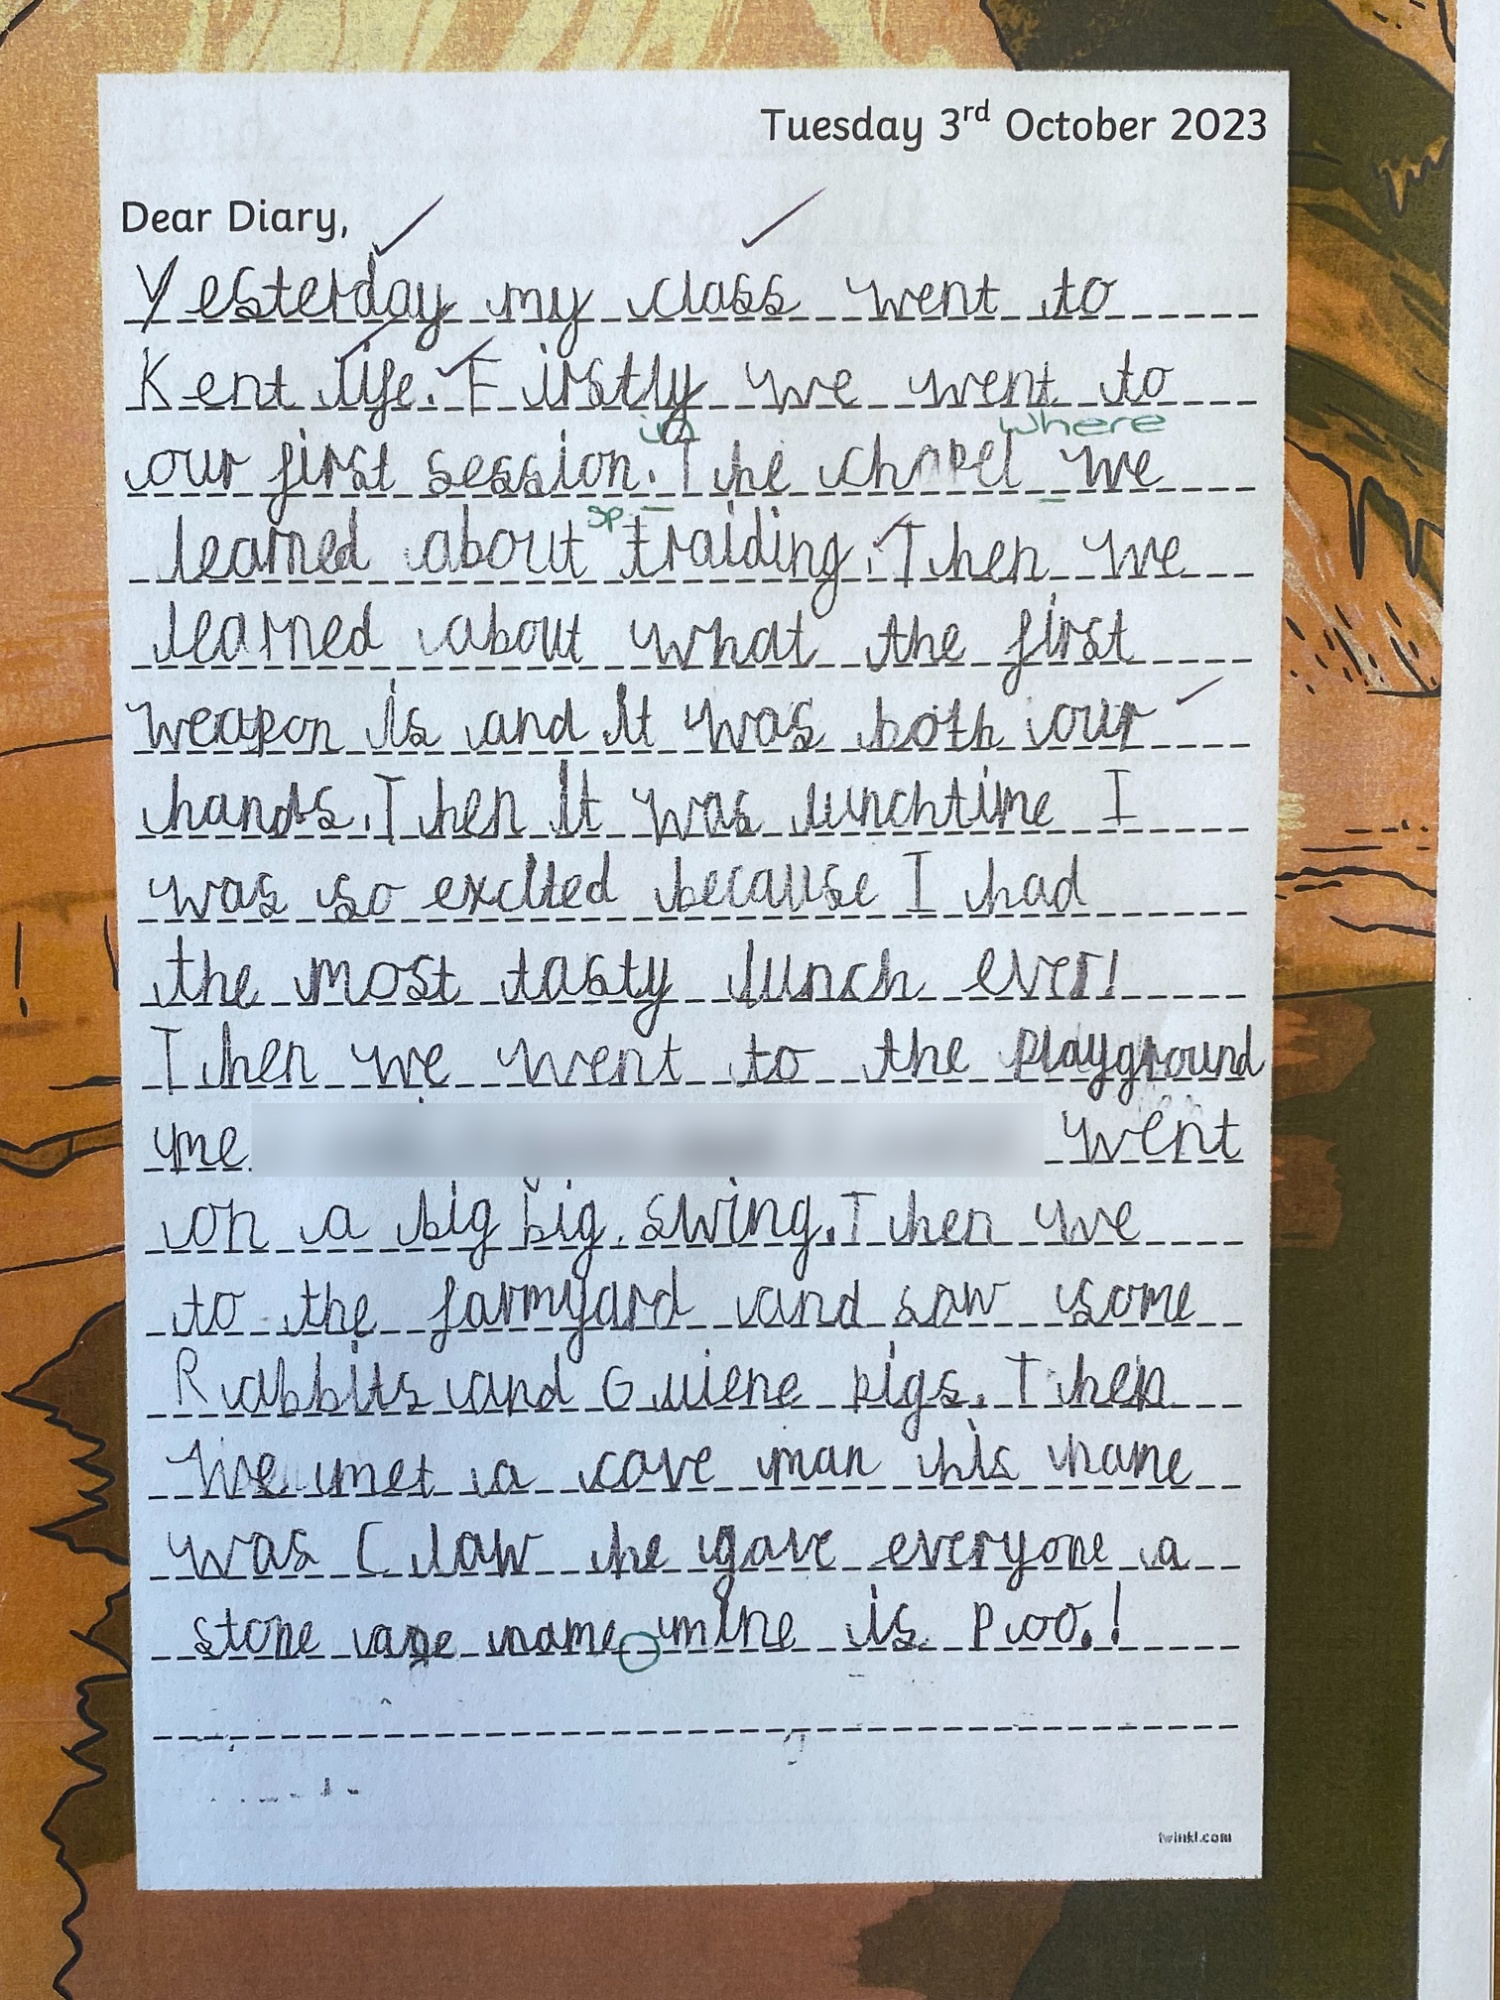 Tuesday 3rd October 2023
Dear Diary,
Yesterday my class went to
Kent life. Firstly we went to
in where
our first session. The chapel we
sp.
learned about traiding. Then we
learned about what the first
weapon is and it was both our
hands. Then it was lunchtime I
was so excited because I had
the most tasty lunch ever!
Then we went to the playground
me went
on a big big swing. Then we
to the farmyard and saw some
Rabbits and Guiene pigs. Then
we met a cave man his name
was Claw he gave everyone a
stone age name mine is Poo.!
twinkl.com